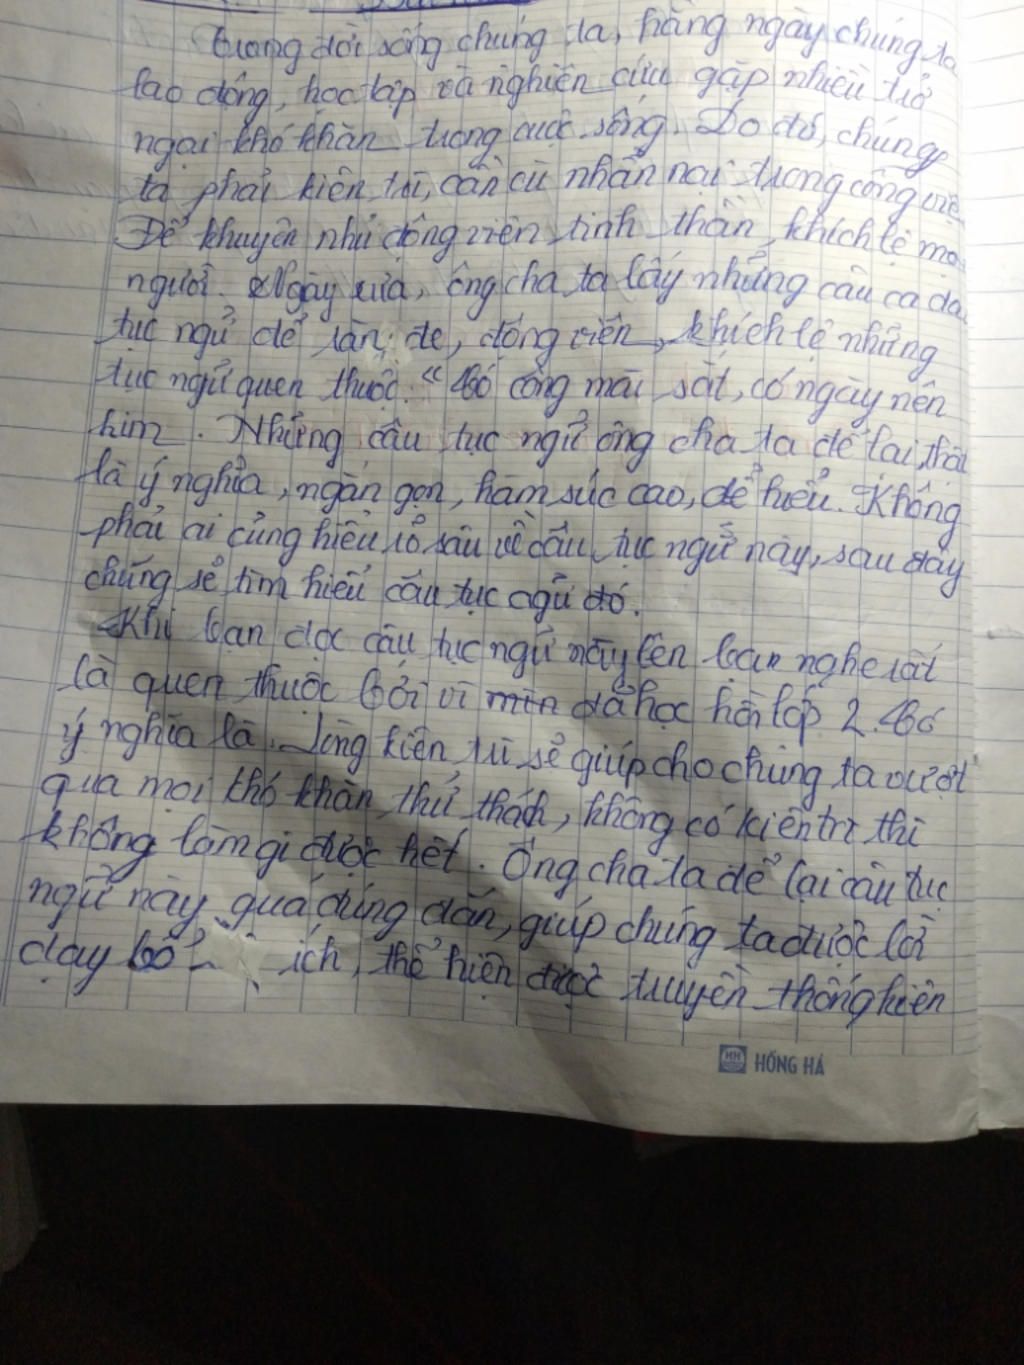 Trong đời sống chúng ta, hằng ngày chúng ta
lao động, học tập và nghiên cứu gặp nhiều trở
ngại khó khăn trong cuộc sống. Do đó, chúng
ta phải kiên trì, cần cù nhẫn nại trong công việ
Để khuyên nhủ động viên tinh thần, khích lệ mọ
người. Ngày xưa, ông cha ta lấy những câu ca da
tục ngữ để răn đe, động viên, khích lệ những
tục ngữ quen thuộc. "Có công mài sắt, có ngày nên
kim. Những câu tục ngữ ông cha ta để lại thật
là ý nghĩa, ngắn gọn, hàm súc cao, dể hiểu. Không
phải ai củng hiểu rỏ sâu về câu tục ngữ này, sau đây
chúng sẻ tìm hiểu câu tục ngữ đó.
Khi bạn đọc câu tục ngữ này lên bạn nghe rất
là quen thuộc bởi vì đả học hồi lớp 2. Có
ý nghĩa là. Lòng kiên trì sẻ giúp cho chúng ta vượt
qua mọi khó khăn thử thách, không có kiên trì thì
không làm gì được hết. Ông cha ta để lại câu tục
ngữ này quá đúng đắn, giúp chúng ta được lời
dạy bổ ích, thể hiện được truyền thống kiên
HH
HỒNG HÀ